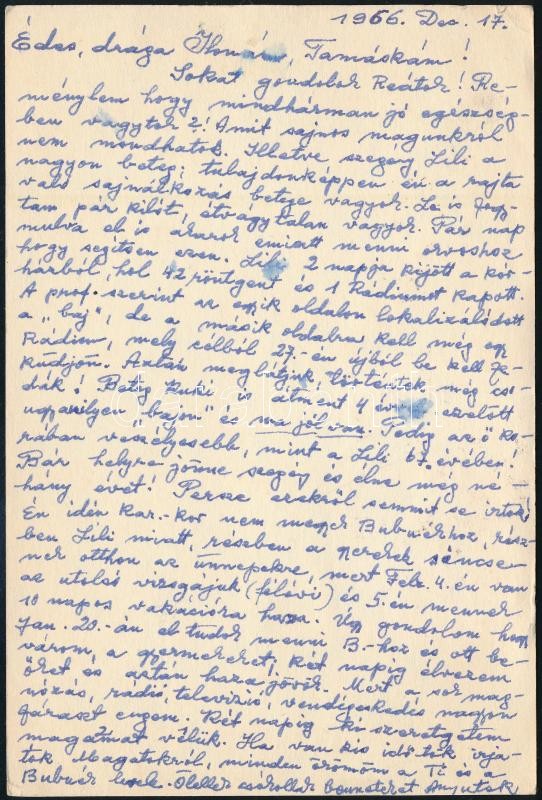 1966. Dec. 17.
Édes, drága Ilonám, Tamáskám!
Sokat gondolok Reátok! Re-
ménylem hogy mindhárman jó egészség-
ben vagytok?! Amit sajnos magunkról
nem mondhatok. Illetve szegény Lili a
nagyon beteg; tulajdonképpen én a rajta
való sajnálkozás betege vagyok. Le is fogy-
tam pár kilót, étvágytalan vagyok. Pár nap
mulva el is akarok emiatt menni orvoshoz
hogy segítsen ezen. Lili 2 napja kijött a kór-
házból, hol 42 röntgent és 1 Rádiumot kapott.
A prof. szerint az egyik oldalon lokalizálódott
a "baj", de a másik oldalba kell még egy
Rádium, mely célból 27.-én újból be kell fe-
küdjön. Aztán meglátjuk, történtek még cso-
dák! Böty Puki is átment 4 évvel ezelőtt
ugyanilyen "bajon" és ma jól van. Pedig az ő ko-
rában veszélyesebb, mint a Lili 67. évében!
Bár helyre jönne szegény és élne még né-
hány évet! Persze ezekről semmit se írtok!
Én idén kar.-kor nem megyek Bubuékhoz, rész-
ben Lili miatt, részben a gyerekek sincse-
nek otthon az ünnepekre, mert Febr. 4.én van
az utolsó vizsgájuk (félévi) és 5.én mennek
10 napos vakációra haza. Úgy gondolom hogy
Jan. 20.-án el tudok menni B.-hoz és ott be-
várom a gyermekeket; két napig élvezem
őket és aztán haza jövök. Mert a sok mag-
nózás, rádió, televízió, vendégeskedés nagyon
fáraszt engem. Két napig ki szeretgetem
magamat velük. Ha van kis időtök írja-
tok Magatokról, minden örömöm a Ti és a
Bubuék levele. Ölellek csókollak benneteket Anyutok